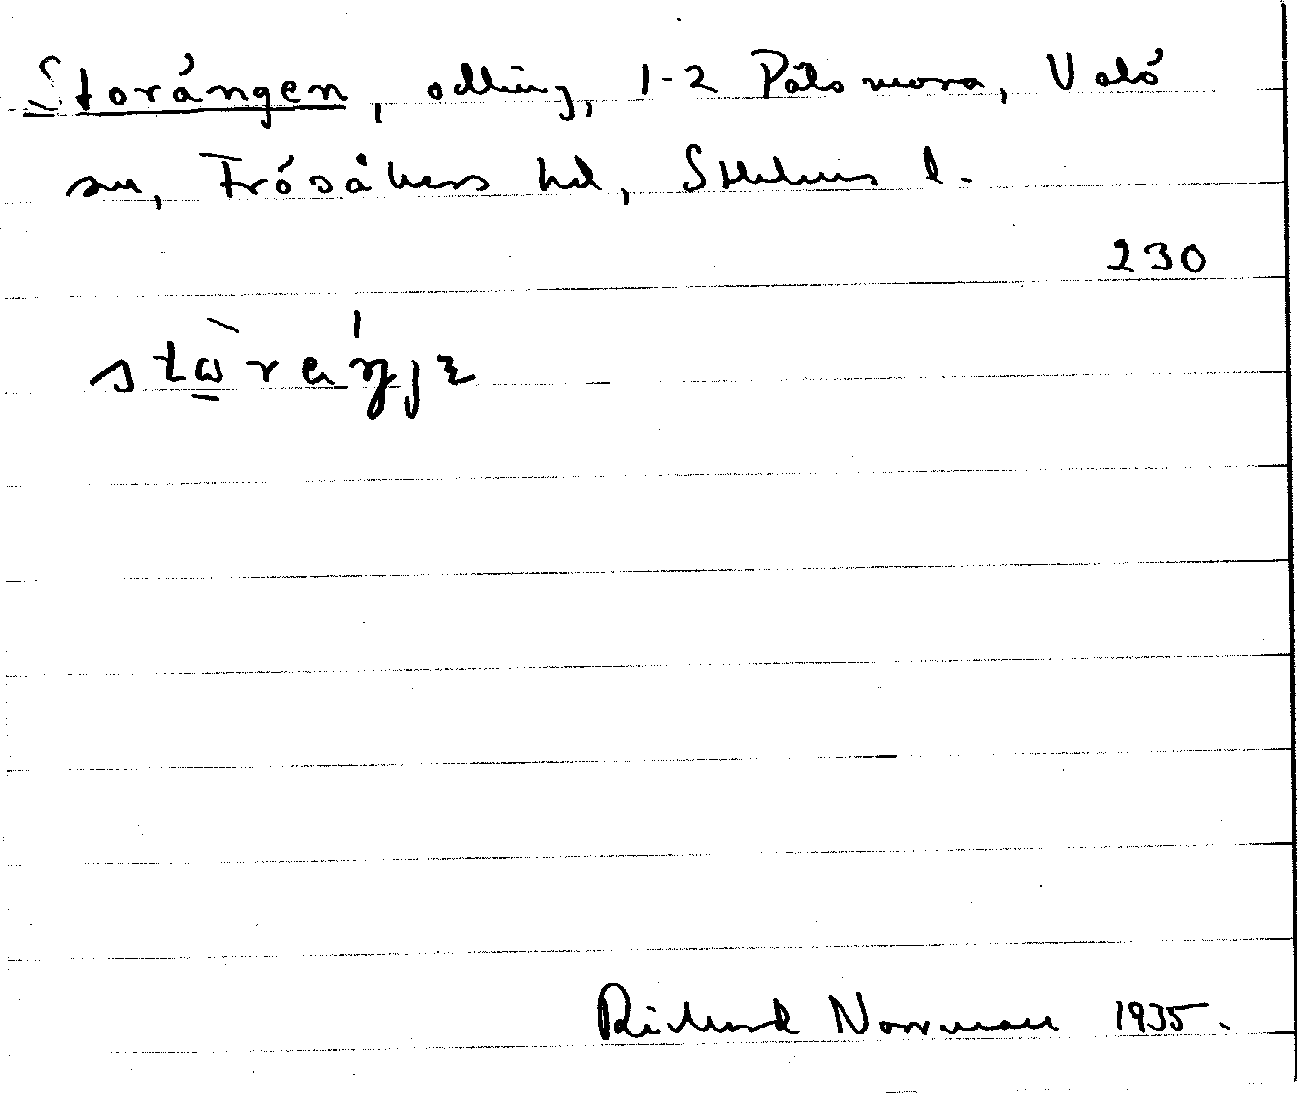 Storängen, odling, 1-2 Pålsmora, Valö
sn, Frösåkers hd, Sthlms l.
230
Richard Norrman 1935.